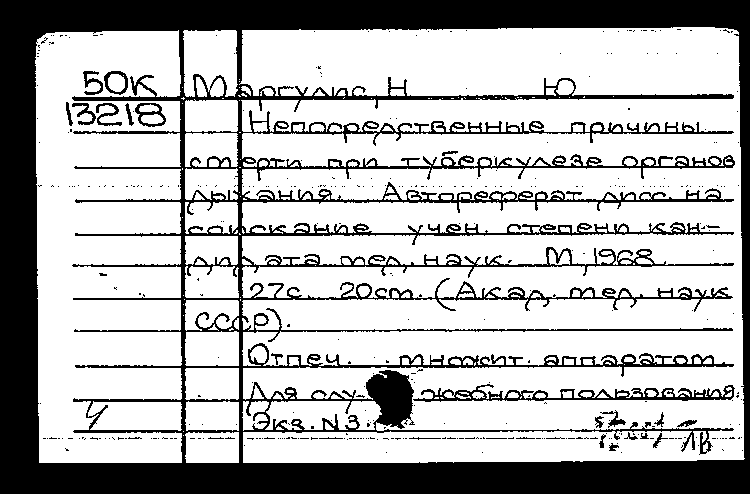 50К Маргулис, Н Ю
13218
Непосредственные причины
смерти при туберкулезе органов
дыхания. Автореферат дисс. на
соискание учен. степени кан-
дидата мед. наук. М, 1968.
27с. 20см. (Акад. мед. наук
СССР).
Отпеч. множит. аппаратом.
Для слу- жебного пользования.
Экз. N3.
ЛВ